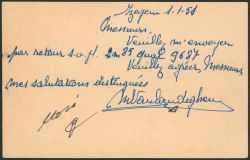 Izegem 1-1-51
Messieurs,
Veuillez m'envoyer
par retour s.v.pl. 2 no 85 qual. 9687
Veuillez agréer, Messieurs
mes salutations distinguées